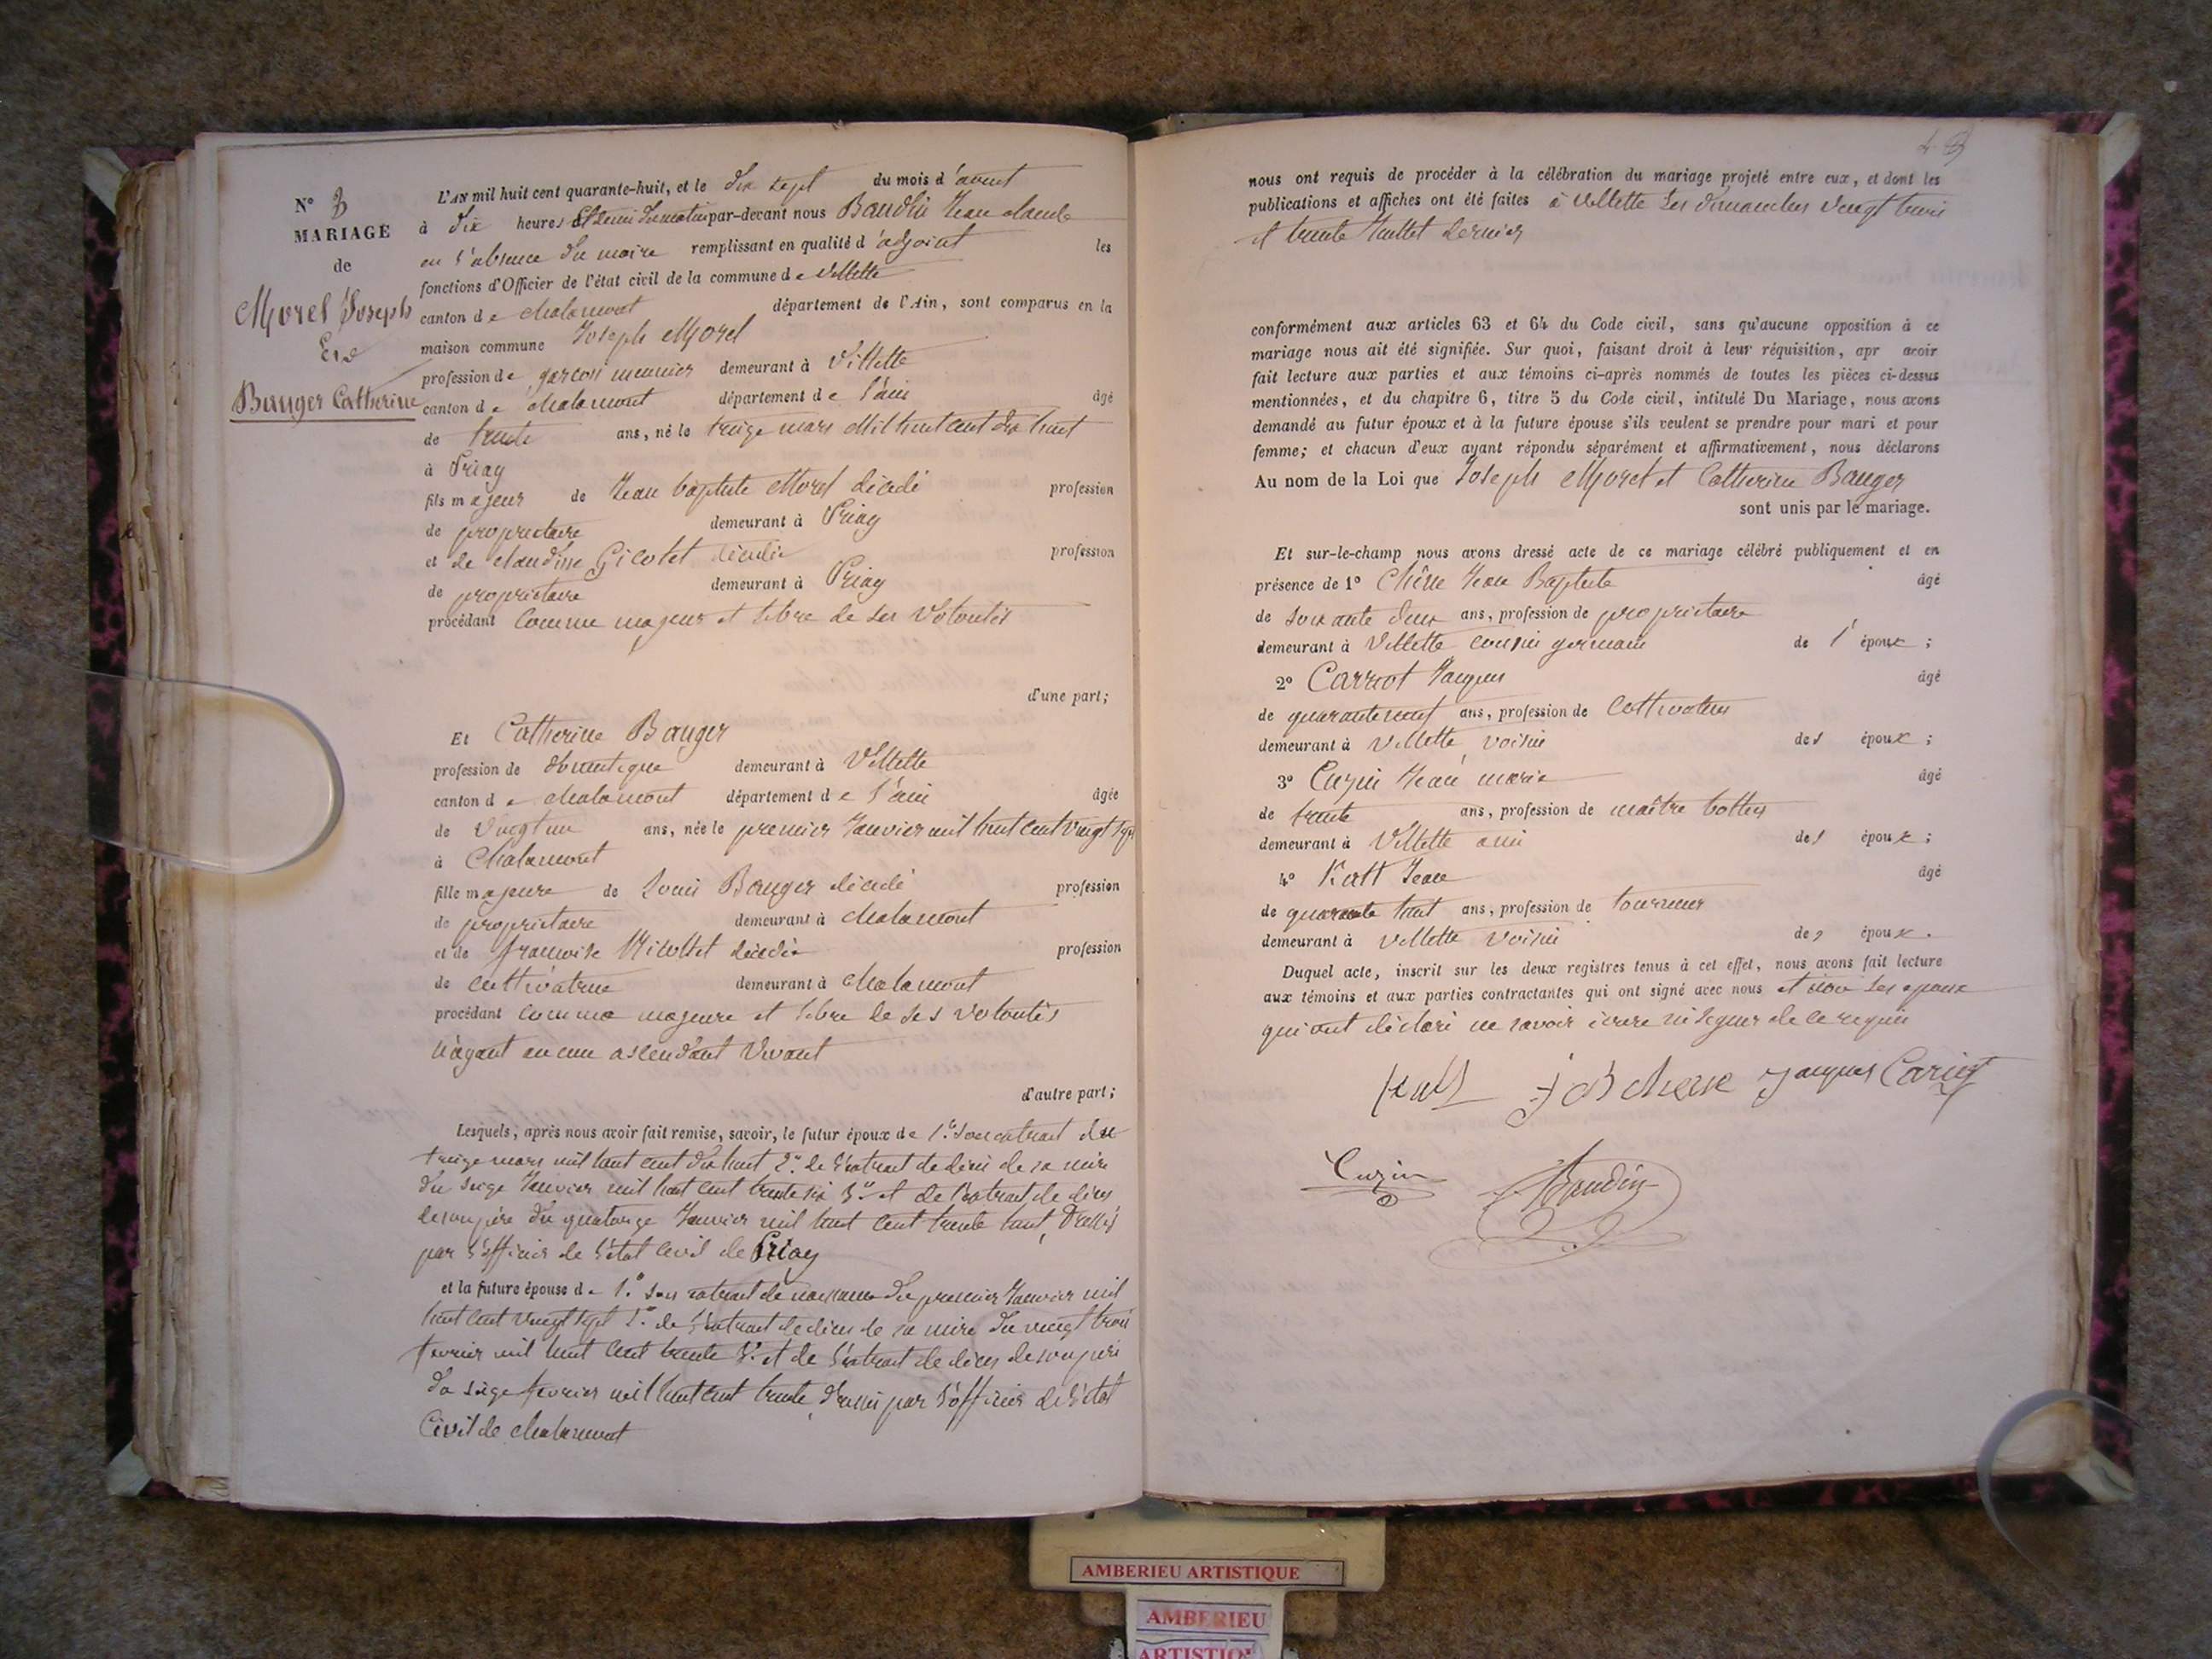 N° 3
MARIAGE
de
Morel Joseph
Et
Bauger Catherine
L'AN mil huit cent quarante-huit, et le dix sept du mois d'aout
à dix heures et demi du matin par-devant nous Baudin Jean claude
en l'absence du maire remplissant en qualité d'adjoint les
fonctions d'Officier de l'état civil de la commune de Villette
canton de chalamont département de l'Ain, sont comparus en la
maison commune Joseph Morel
profession de garcon meunier demeurant à Villette
canton de chalamont département de l'ain âgé
de trente ans, né le treize mars Mil huit cent dix huit
à Priay
fils majeur de Jean baptiste Morel décédé profession
de propriétaire demeurant à Priay
et de claudine Gicolet décédée profession
de propriétaire demeurant à Priay
procédant comme majeur et libre de ses Volontés
d'une part;
Et Catherine Bauger
profession de domestique demeurant à Villette
canton de chalamont département de l'ain âgée
de Vingt un ans, née le premier Janvier mil huit cent vingt sept
à Chalamont
fille majeure de Louis Bauger décédé profession
de propriétaire demeurant à chalamont
et de francoise Nicollet décédée profession
de cultivatrice demeurant à chalamont
procédant comme majeure et libre de ses volontés
n'ayant aucun ascendant Vivant
d'autre part;
Lesquels, après nous avoir fait remise, savoir, le futur époux de 1° son extrait du
treize mars mil huit cent dix huit 2° de l'extrait de décès de sa mère
du seize Janvier mil huit cent trente six 3° et de l'extrait de décès
de son père du quatorze Janvier mil huit cent trente huit, Dressés
par l'officier de l'état civil de Priay
et la future épouse de 1° son extrait de naissance du premier Janvier mil
huit cent vingt sept 2° de l'extrait de décès de sa mère du vingt trois
fevrier mil huit cent trente 3° et de l'extrait de décès de son père
du seize fevrier mil huit cent trente dressés par l'officier de l'état
Civil de chalamont
nous ont requis de procéder à la célébration du mariage projeté entre eux, et dont les
publications et affiches ont été faites à Villette les dimanches vingt trois
et trente Juillet dernier
conformément aux articles 63 et 64 du Code civil, sans qu'aucune opposition à ce
mariage nous ait été signifiée. Sur quoi, faisant droit à leur réquisition, apr avoir
fait lecture aux parties et aux témoins ci-après nommés de toutes les pièces ci-dessus
mentionnées, et du chapitre 6, titre 5 du Code civil, intitulé Du Mariage, nous avons
demandé au futur époux et à la future épouse s'ils veulent se prendre pour mari et pour
femme; et chacun d'eux ayant répondu séparément et affirmativement, nous déclarons
Au nom de la Loi que Joseph Morel et Catherine Bauger
sont unis par le mariage.
Et sur-le-champ nous avons dressé acte de ce mariage célébré publiquement et en
présence de 1° Chêne Jean Baptiste âgé
de soixante deux ans, profession de propriétaire
demeurant à Villette cousin germain de l'époux;
2° Carriot Jacques âgé
de quarante neuf ans, profession de Cultivateur
demeurant à Villette voisin des époux;
3° Cuzin Jean marie âgé
de trente ans, profession de maître bottier
demeurant à Villette ami des époux;
4° Katt Jean âgé
de quarante huit ans, profession de tourneur
demeurant à Villette voisin des époux.
Duquel acte, inscrit sur les deux registres tenus à cet effet, nous avons fait lecture
aux témoins et aux parties contractantes qui ont signé avec nous et non les epoux
qui ont déclaré ne savoir écrire ni signer de ce requis
J B chene Jacques Cariot
Cuzin Baudin
AMBERIEU ARTISTIQUE
AMBERIEU